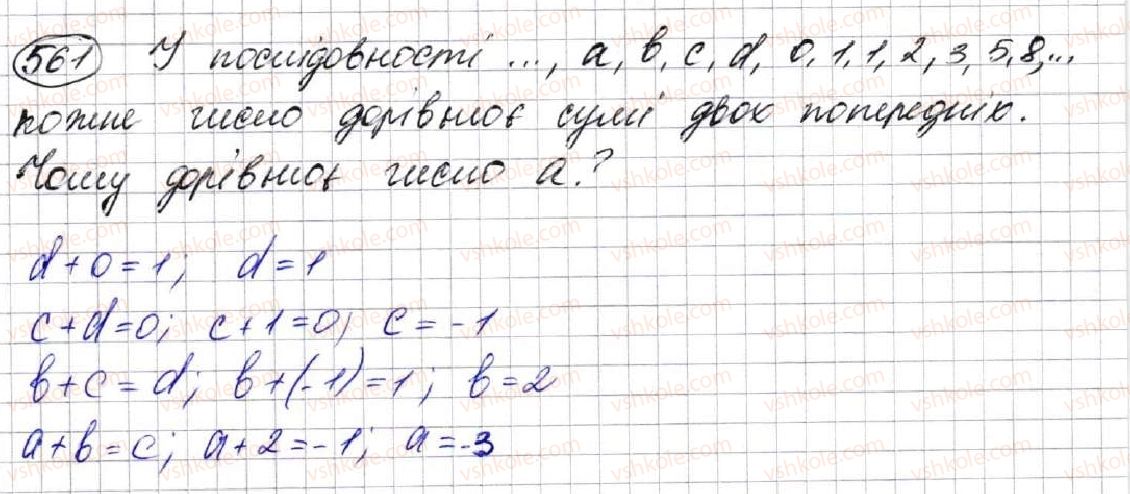 561 У послідовності ..., a, b, c, d, 0, 1, 1, 2, 3, 5, 8, ...
кожне число дорівнює сумі двох попередніх.
Чому дорівнює число a?
d + 0 = 1; d = 1
c + d = 0; c + 1 = 0; c = -1
b + c = d; b + (-1) = 1; b = 2
a + b = c; a + 2 = -1; a = -3